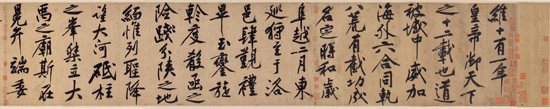 維十有一年
皇帝御天下
之十二載也道
被域中威加
海外六合同軌
八荒有截功成
名定時和歲
阜越二月東
巡狩至于洛
邑肆覲禮
畢玉鑾旋
軫度殽函之
險踐分陝之地
緬惟列聖降
望大河砥柱
之峯桀立大
禹之廟斯在
冕弁端委